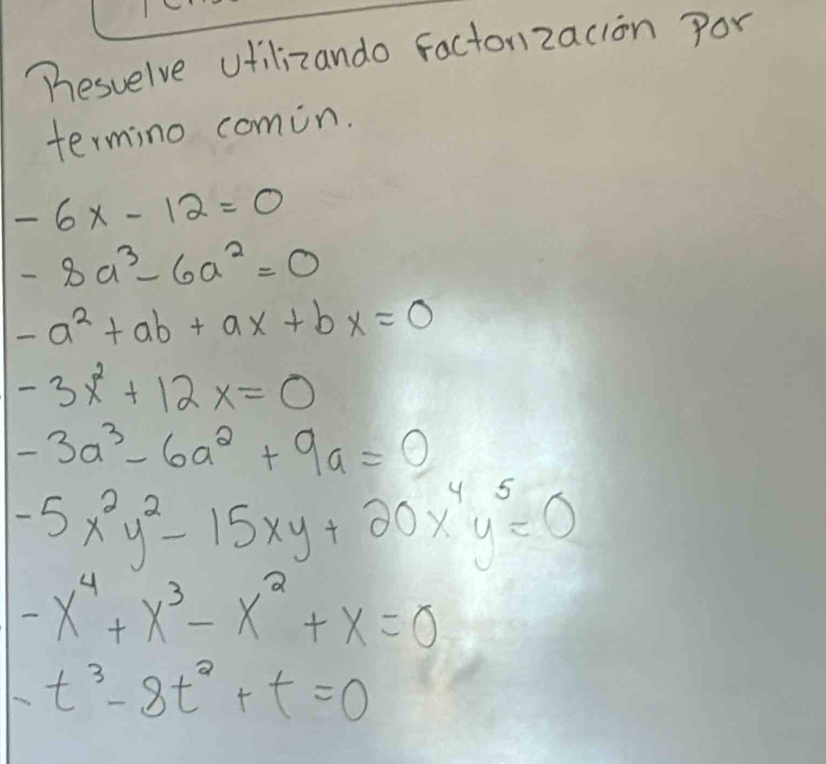 Resuelve utilizando Factorización Por
termino común.
- 6x - 12 = 0
- 8a³ - 6a² = 0
- a² + ab + ax + bx = 0
- 3x² + 12x = 0
- 3a³ - 6a² + 9a = 0
- 5x²y² - 15xy + 20x⁴y⁵ = 0
- x⁴ + x³ - x² + x = 0
- t³ - 8t² + t = 0